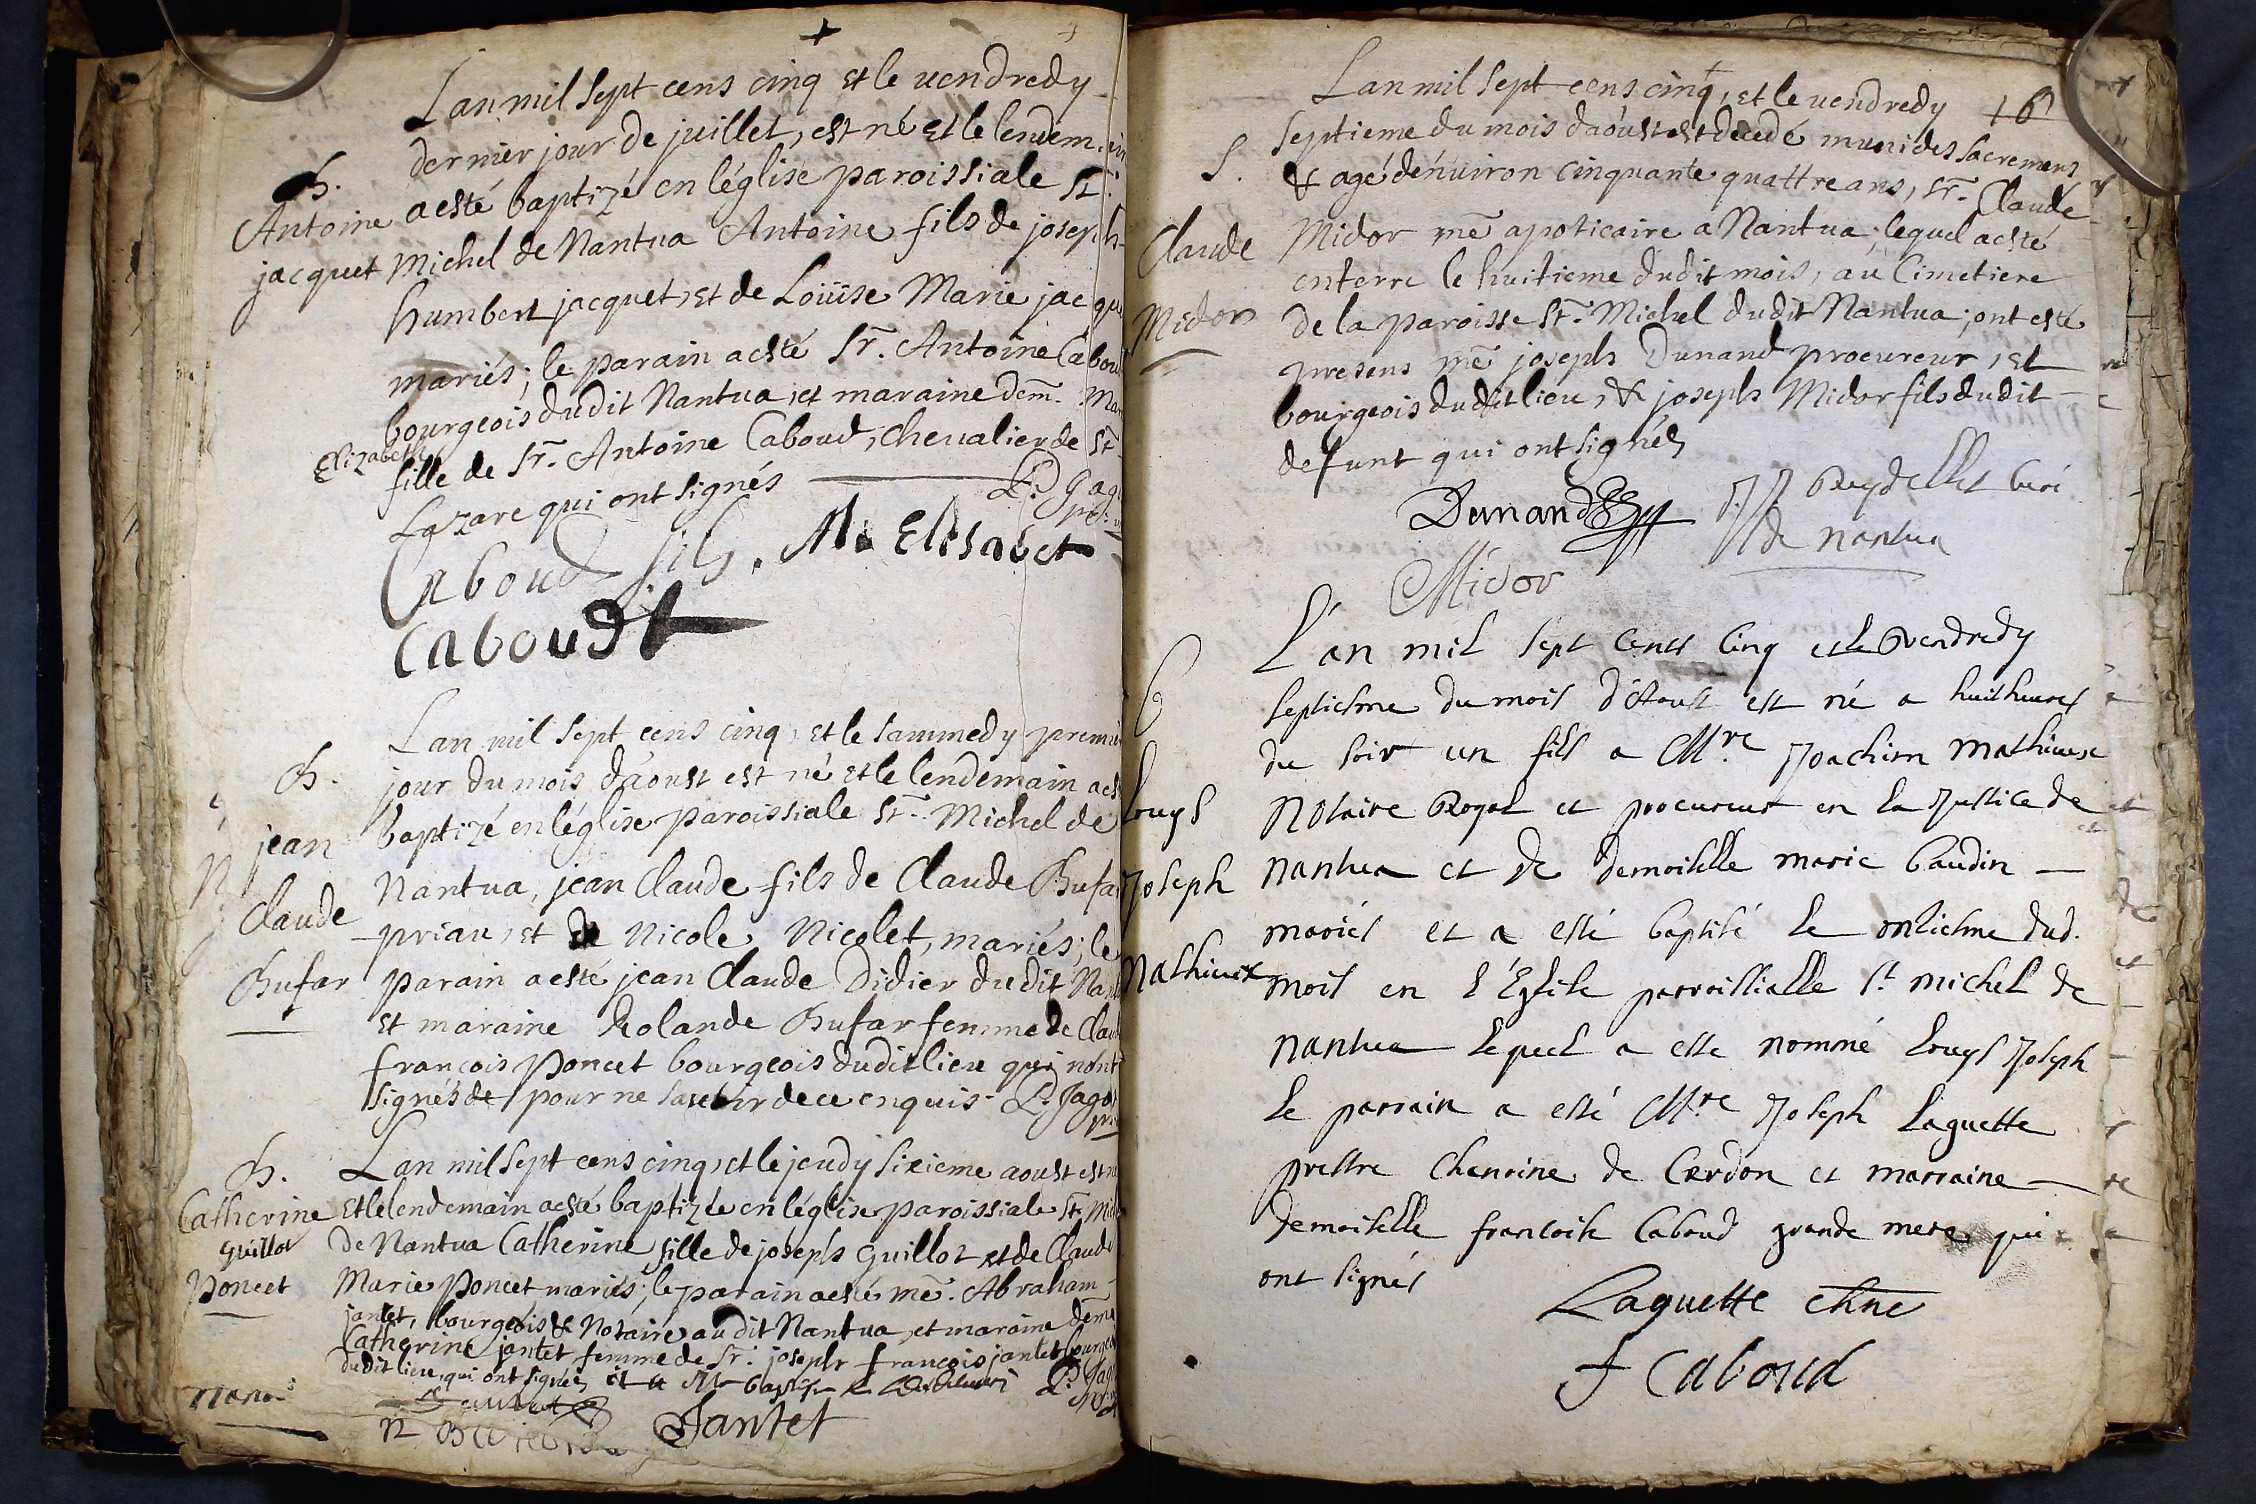 Lan mil sept cens cinq et le vendredy
dernier jour de juillet, est né et le lendem.
B.
Antoine
jacquet
a esté baptizé en léglise paroissiale St.
Michel de Nantua Antoine fils de joseph
humbert jacquet, et de Loüise Marie jacque
mariés; le parain a esté Sr. Antoine Caboud
bourgeois dudit Nantua, et maraine dem. Mar
Elizabeth
fille de Sr. Antoine Caboud, chevalier de St
Lazare qui ont signés
Caboud fils. M. Elisabet
Caboudt
Lan mil sept cens cinq, et le sammedy premie
B.
jean
Claude
Bufar
jour du mois d'aoust est né et le lendemain a est
baptizé en léglise paroissiale St. Michel de
Nantua, jean Claude fils de Claude Bufar
priau, et de Nicole Nicolet, mariés; le
parain a esté jean Claude Didier dudit Nant
et maraine Rolande Bufar femme de Clau
françois Poncet bourgeois dudit lieu qui n'ont
signés de pour ne savoir de ce enquis
B.
Catherine
guillot
Poncet
Lan mil sept cens cinq, et le jeudy sixieme aoust est n
et le lendemain a esté baptizée en léglise paroissiale St. Mic
de Nantua Catherine fille de joseph Guillot et de Claud
Marie Poncet mariés; le parain a esté me. Abraham
jantet, bourgeois & Notaire audit Nantua, et maraine dem
Catherine jantet femme de Sr. joseph françois jantet bourgeo
dudit lieu, qui ont signés
Jantet
167
Lan mil sept cens cinq, et le vendredy
S.
Claude
Midor
septieme du mois d'aoust est decedé muni des Sacremens
& agé d'enuiron cinquante quattre ans, Sr. Claude
Midor me apoticaire a Nantua; lequel a esté
enterre le huitieme dudit mois, au Cimetiere
de la paroisse St. Michel dudit Nantua; ont esté
presens me joseph Dunand procureur, et
bourgeois dudit lieu, & joseph Midor fils dudit
defunt qui ont signés
Dunand
Reydellet curé
de nantua
Midor
B
Louys
Joseph
Mathieux
L'an mil sept cents cinq et le vendredy
septiesme du mois d'Aoust est né a huit heures
du soir un fils a Mre. Joachim Mathieux
Notaire Royal et procureur en la Justice de
nantua et de demoiselle marie baudin
mariés et a esté baptisé le onziesme dud.
mois en l'Eglise parroissialle St michel de
nantua lequel a esté nommé Louys Joseph
le parrain a esté Mre Joseph Laguette
prestre Chanoine de Cerdon et marraine
demoiselle francoise Caboud grande mere qui
ont signés
Laguette chne
f Caboud